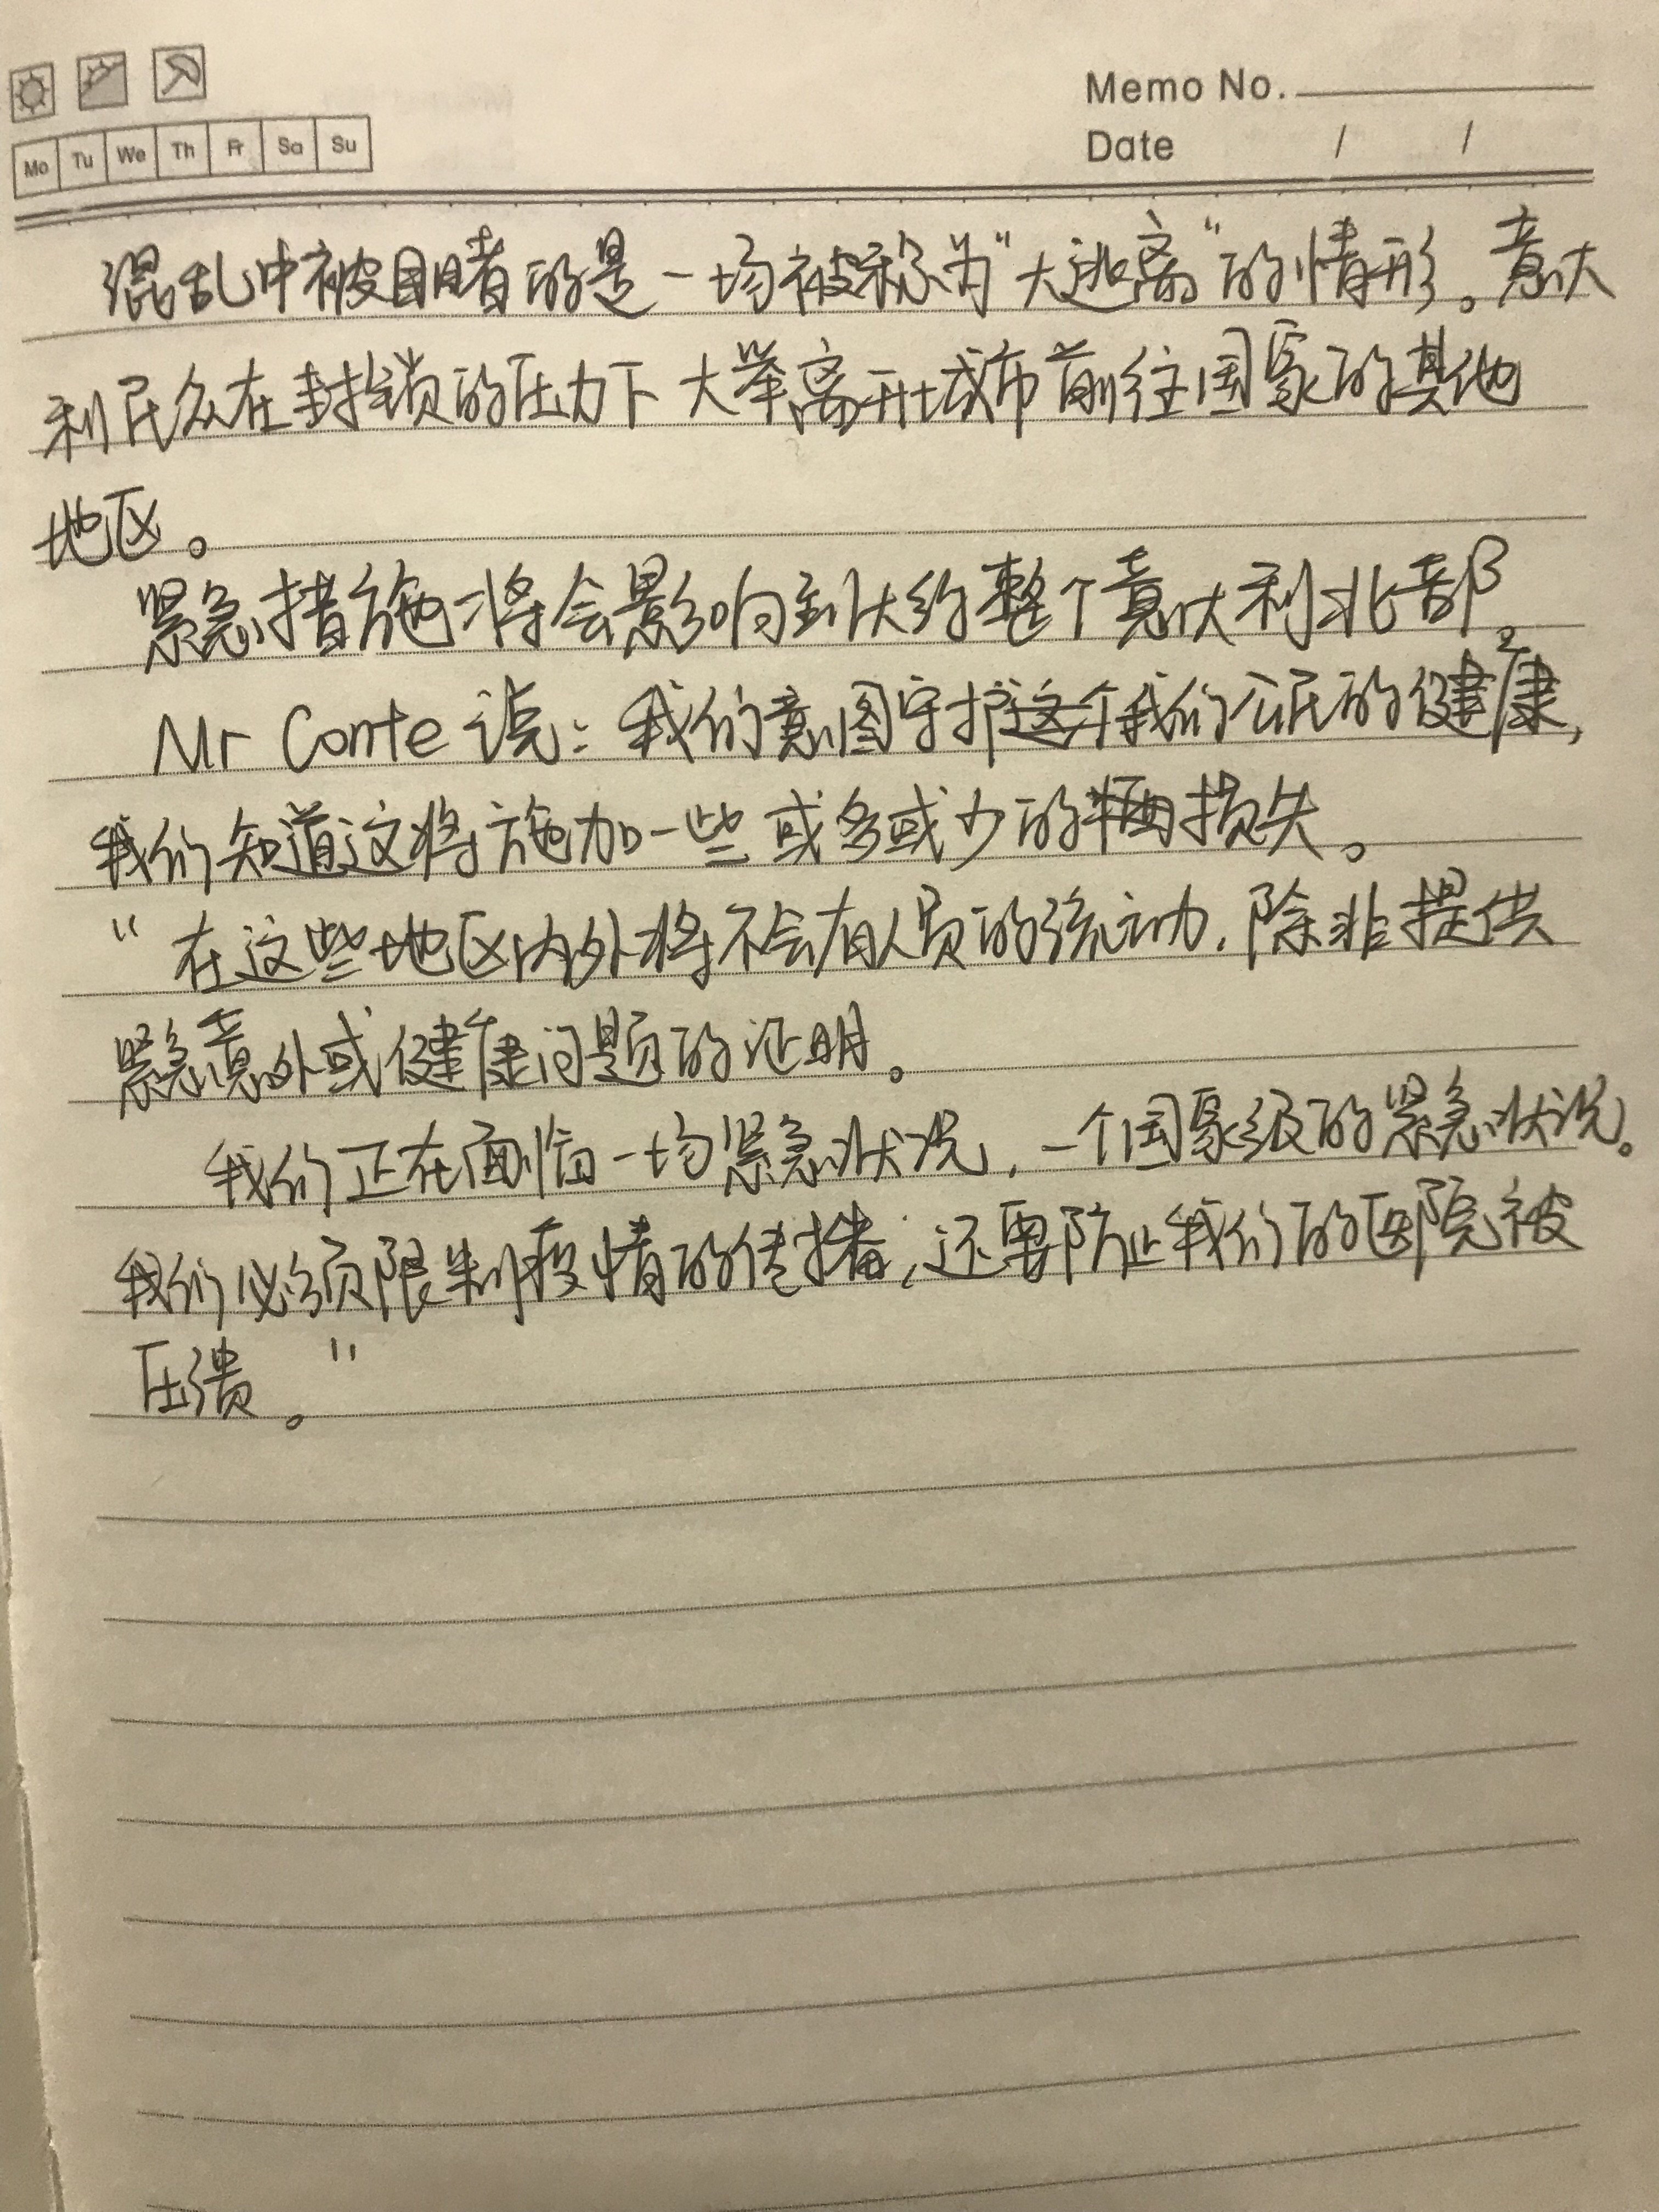 Memo No.
Mo Tu We Th Fr Sa Su
Date / /
混乱中被目睹的是一场被称为“大逃离“的情形。意大
利民众在封锁的压力下大举离开城市前往国家的其他
地区。
紧急措施将会影响到大约整个意大利北部。
Mr Conte 说：我们意图守护我们公民的健康,
我们知道这将施加一些或多或少的损失。
“在这些地区内外将不会有人员的流动,除非提供
紧急意外或健康问题的证明。
我们正在面临一场紧急状况,一个国家级的紧急状况。
我们必须限制疫情的传播,还要防止我们的医院被
压溃。”